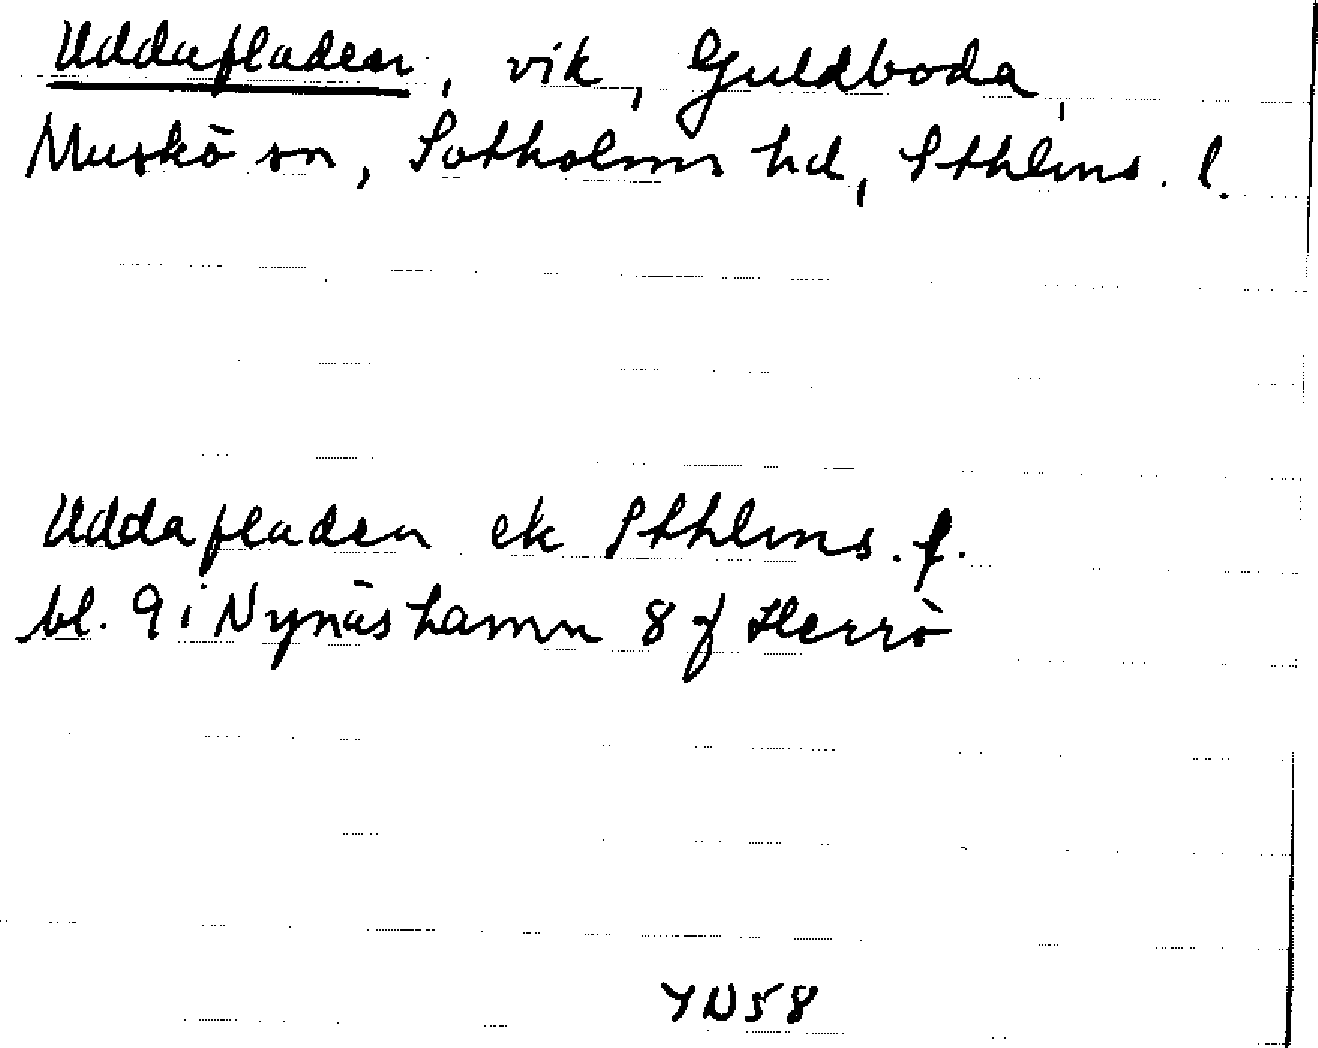 Uddafladen, vik, Guldboda,
Muskö sn, Sotholms hd, Sthlms. l.
Uddafladen ek Sthlms. f.
bl. 9 i Nynäshamn 8 f Herrö
YN58